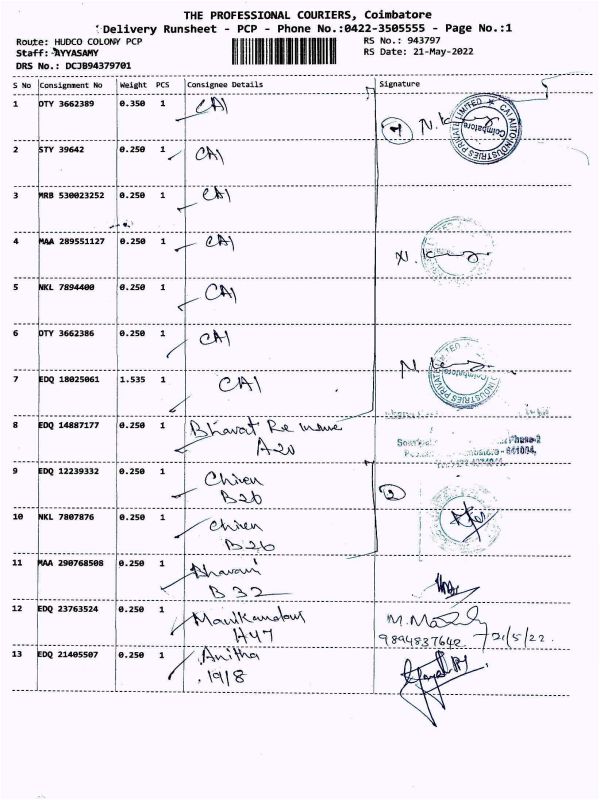 THE PROFESSIONAL COURIERS, Coimbatore
Delivery Runsheet - PCP - Phone No.:0422-3505555 - Page No.:1
Route: HUDCO COLONY PCP RS No.: 943797
Staff: AYYASAMY RS Date: 21-May-2022
DRS No.: DCJB94379701
S No Consignment No Weight PCS Consignee Details Signature
1 DTY 3662389 0.350 1 CAI 7 N.
CAI AUTO INDUSTRIES PRIVATE LIMITED Coimbatore
2 STY 39642 0.250 1 CAI
3 MRB 530023252 0.250 1 CAI
4 MAA 289551127 0.250 1 CAI N.
5 NKL 7894400 0.250 1 CAI
6 DTY 3662386 0.250 1 CAI
7 EDQ 18025061 1.535 1 CAI N.
INDUSTRIES PRIVATE LIMITED Coimbatore
8 EDQ 14887177 0.250 1 Bharat Re
A20
Phase-2
- 641004,
9 EDQ 12239332 0.250 1 Chiren 2
B26
10 NKL 7807876 0.250 1 Chiren
B26
11 MAA 290768508 0.250 1 Bhavani
B 32
12 EDQ 23763524 0.250 1 Manikandan M.
H47 9894837642 21/5/22
13 EDQ 21405507 0.250 1 Anitha
19/8